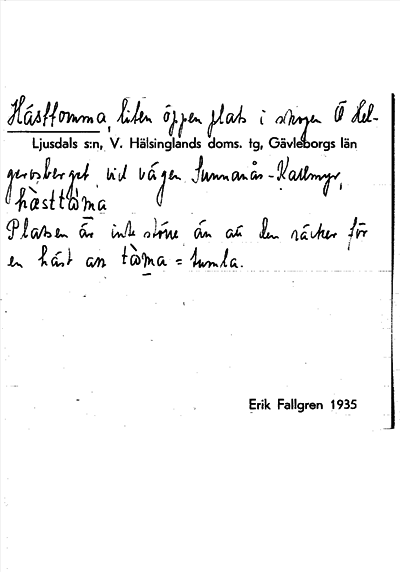 Hästtomma, liten öppen plats i skogen Ö Hel-
Ljusdals s:n, V. Hälsinglands doms. tg, Gävleborgs län
gerosberget vid vägen Sunnanås-Karlmyr,
hästtòma
Platsen är inte större än att den räcker för
en häst att tòma = tumla.
Erik Fallgren 1935